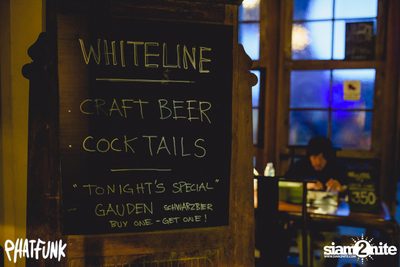 WHITELINE
· CRAFT BEER
· COCKTAILS
"TONIGHT'S SPECIAL"
GAUDEN SCHWARZBIER
BUY ONE - GET ONE!
350
PHATFUNK
siam2nite
WWW.SIAM2NITE.COM